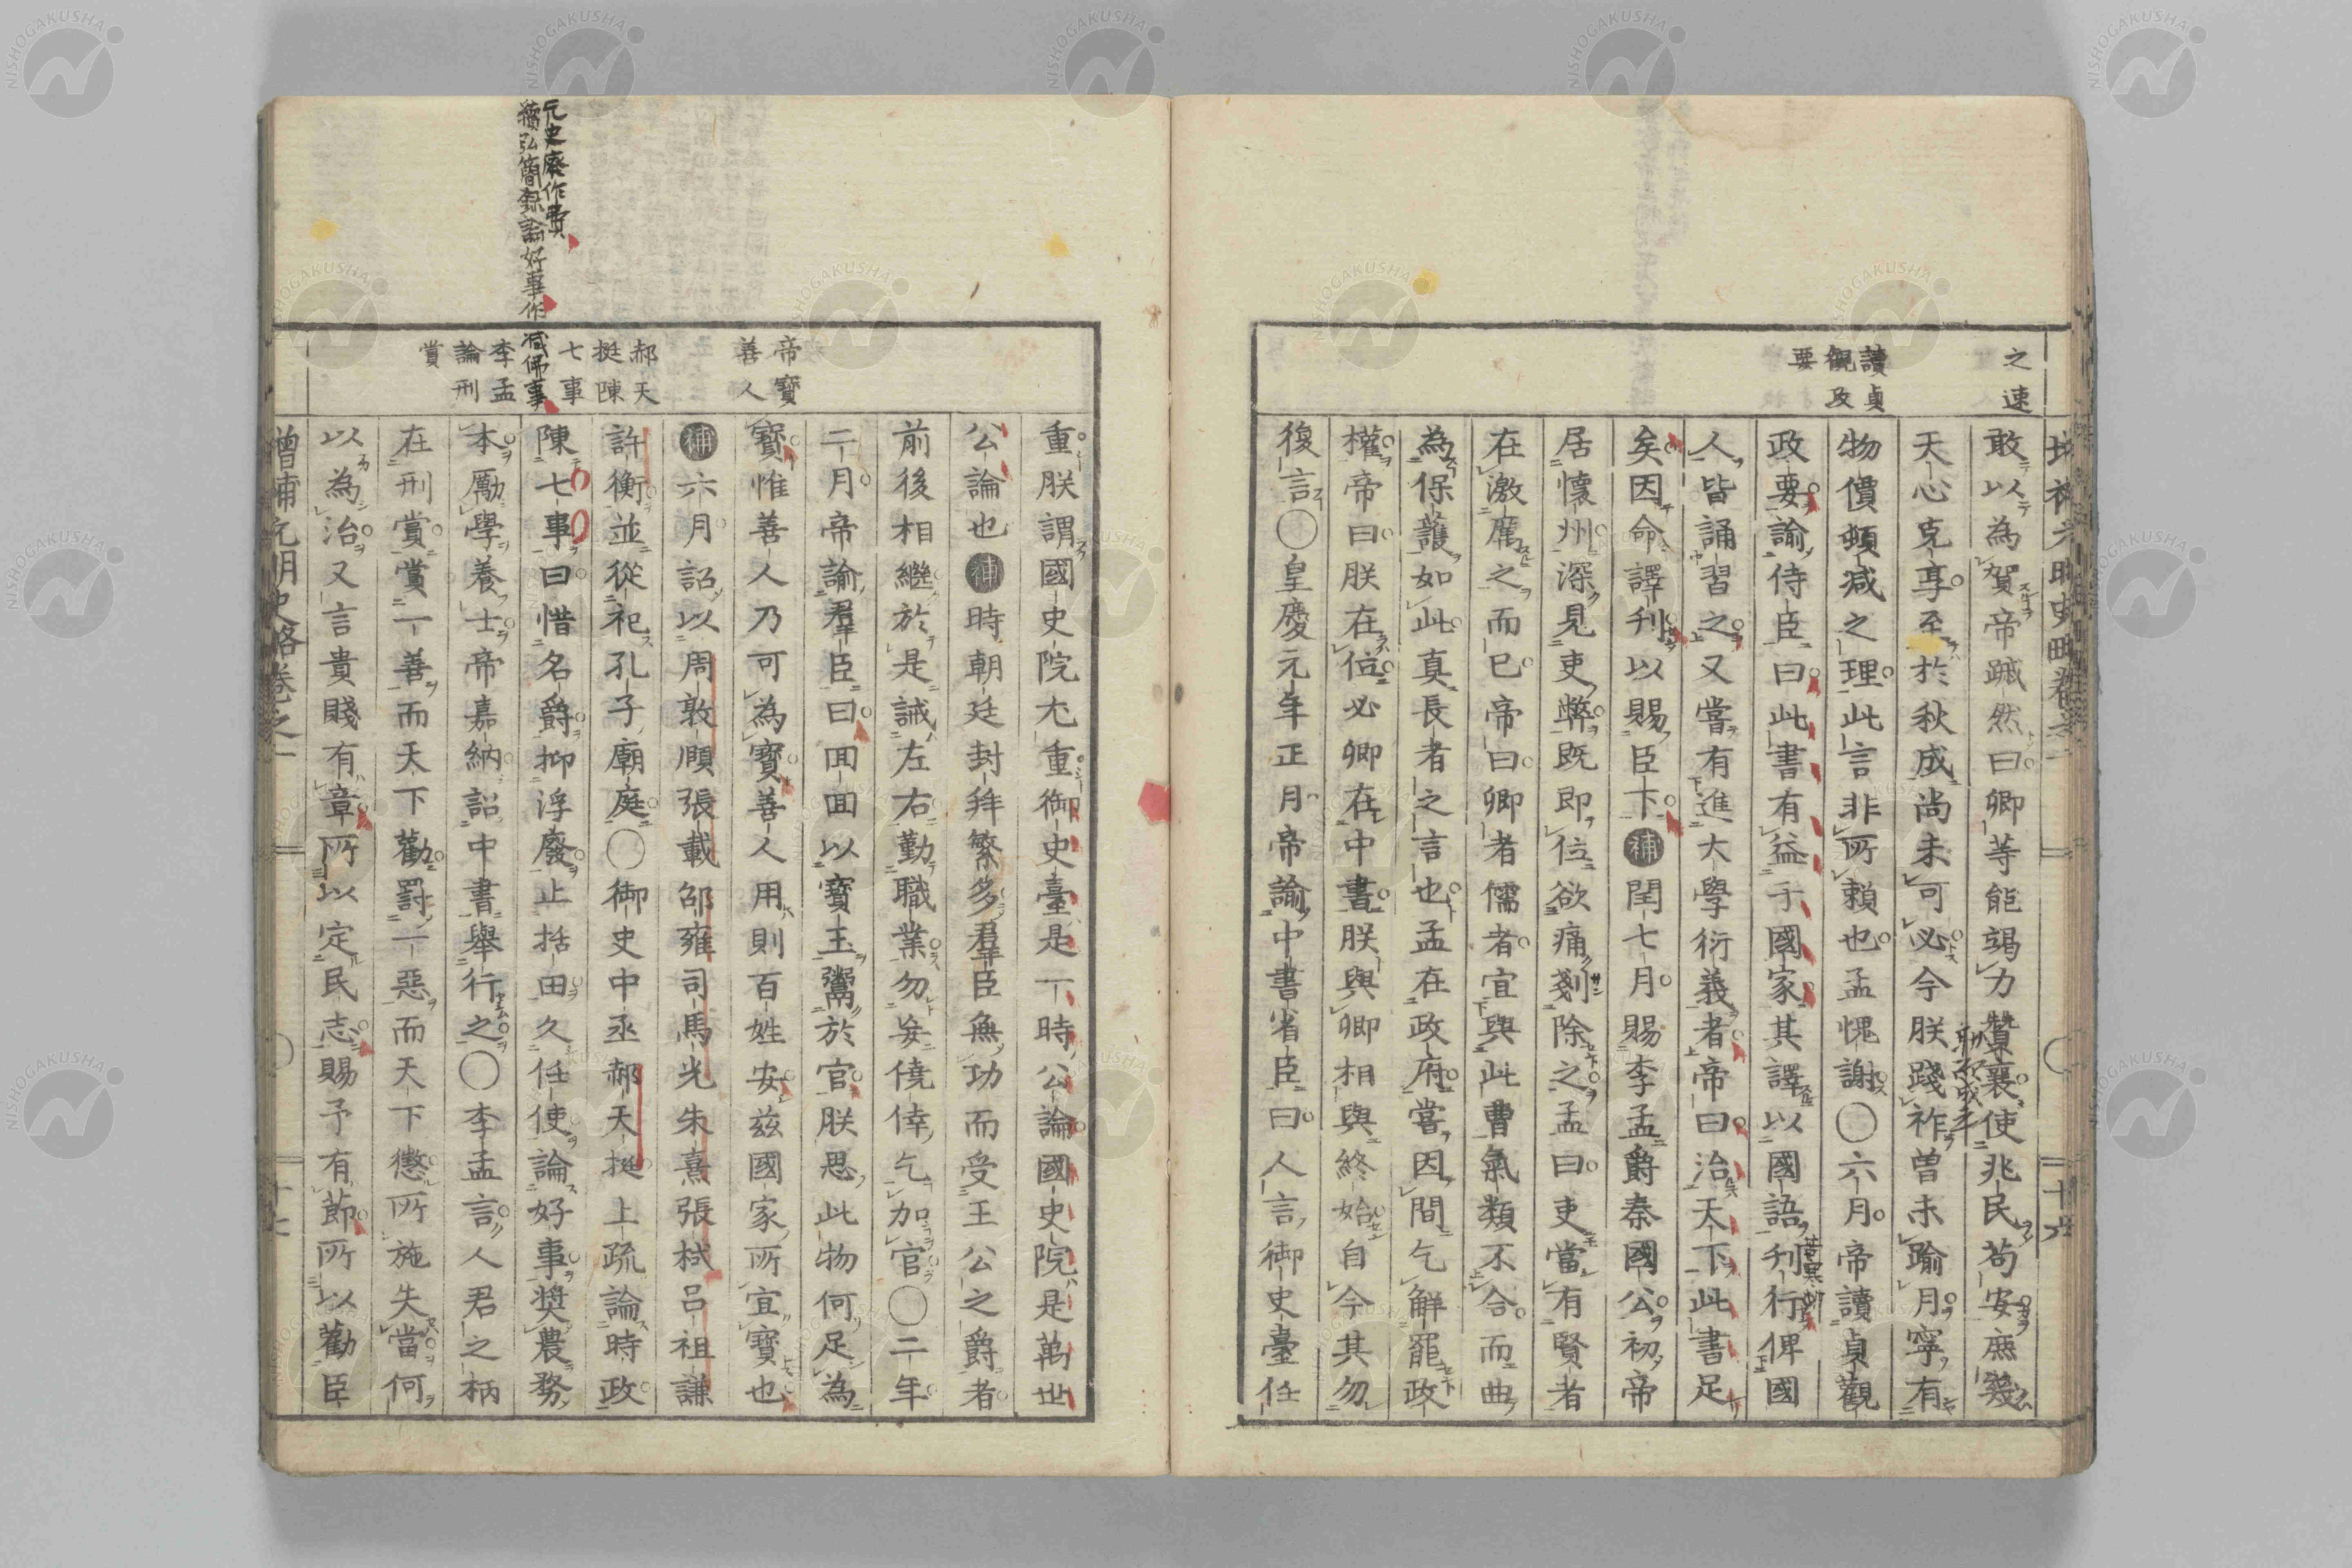 之速
讀貞
觀及
要
敢以為賀帝蹴然曰卿等能竭力贊襄使兆民苟安庶幾
天心克享至於秋成尚未可必今朕踐祚曾未踰月寧有
物價頓減之理此言非所賴也孟愧謝○六月帝讀貞觀
政要諭侍臣曰此書有益于國家其譯以國語刋行俾國
人皆誦習之又嘗有進大學衍義者帝曰治天下此書足
矣因命譯刋以賜臣下補閏七月賜李孟爵秦國公初帝
居懷州深見吏弊既即位欲痛剗除之孟曰吏當有賢者
在激厲之而已帝曰卿者儒者宜與此曹氣類不合而曲
為保護如此真長者之言也孟在政府嘗因間乞解罷政
權帝曰朕在位必卿在中書朕與卿相與終始自今其勿
復言○皇慶元年正月帝諭中書省臣曰人言御史臺任
帝寶
善人
郝天
挺陳
七事
李孟
論刑
賞
重朕謂國史院尤重御史臺是一時公論國史院是萬世
公論也補時朝廷封拜繁多羣臣無功而受王公之爵者
前後相繼於是誡左右勤職業勿妄僥倖乞加官○二年
二月帝諭羣臣曰囬囬以寶玉鬻於官朕思此物何足為
寶惟善人乃可為寶善人用則百姓安茲國家所宜寶也
補六月詔以周敦頤張載邵雍司馬光朱熹張栻呂祖謙
許衡並從祀孔子廟庭○御史中丞郝天挺上疏論時政
陳七事曰惜名爵抑浮廢止括田久任使論好事奬農務
本勵學養士帝嘉納詔中書舉行之○李孟言人君之柄
在刑賞賞一善而天下勸罰一惡而天下懲所施失當何
以為治又言貴賤有章所以定民志賜予有節所以勸臣
增補元明史略卷之一
元史廢作費
續弘簡録論好事作
減佛事